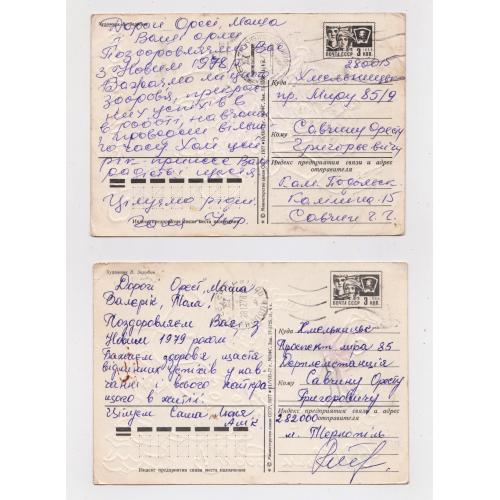 Дорогі Орест, Маша
і Ваші
Поздоровляємо Вас
з Новим 1978 р.
міцного
здоров'я,
них успіхів
в роботі, навчанні
і проводити вільно-
го часу Хай цей
рік принесе Вам
радості щастя
Цілуємо рідні
ПОЧТА СССР 3 КОП.
280015
Куда Хмельницьк
пр. Миру 85/9
Кому Савчину Оресту
Григорьевичу
Индекс предприятия связи и адрес
отправителя
Кам. Подольск
Калініна-15
Савчин Г. Г.
Индекс предприятия связи места назначения
© Министерство связи СССР.
Художник В. Зарубин
Дорогі Орест, Маша
Валерік, Толя.
Поздоровляєм Вас з
Новим 1979 роком
Бажаєм здоровя, щастя
відмінних успіхів у нав-
чанні і всього найкра-
щого в житті.
Цілуєм Саша
ПОЧТА СССР 3 КОП.
Куда Хмельницьк
Проспект міра 85
Кому Савчину Оресту
Григоровичу
Индекс предприятия связи и адрес
отправителя
282000
м. Тернопіль
Индекс предприятия связи места назначения
© Министерство связи СССР.